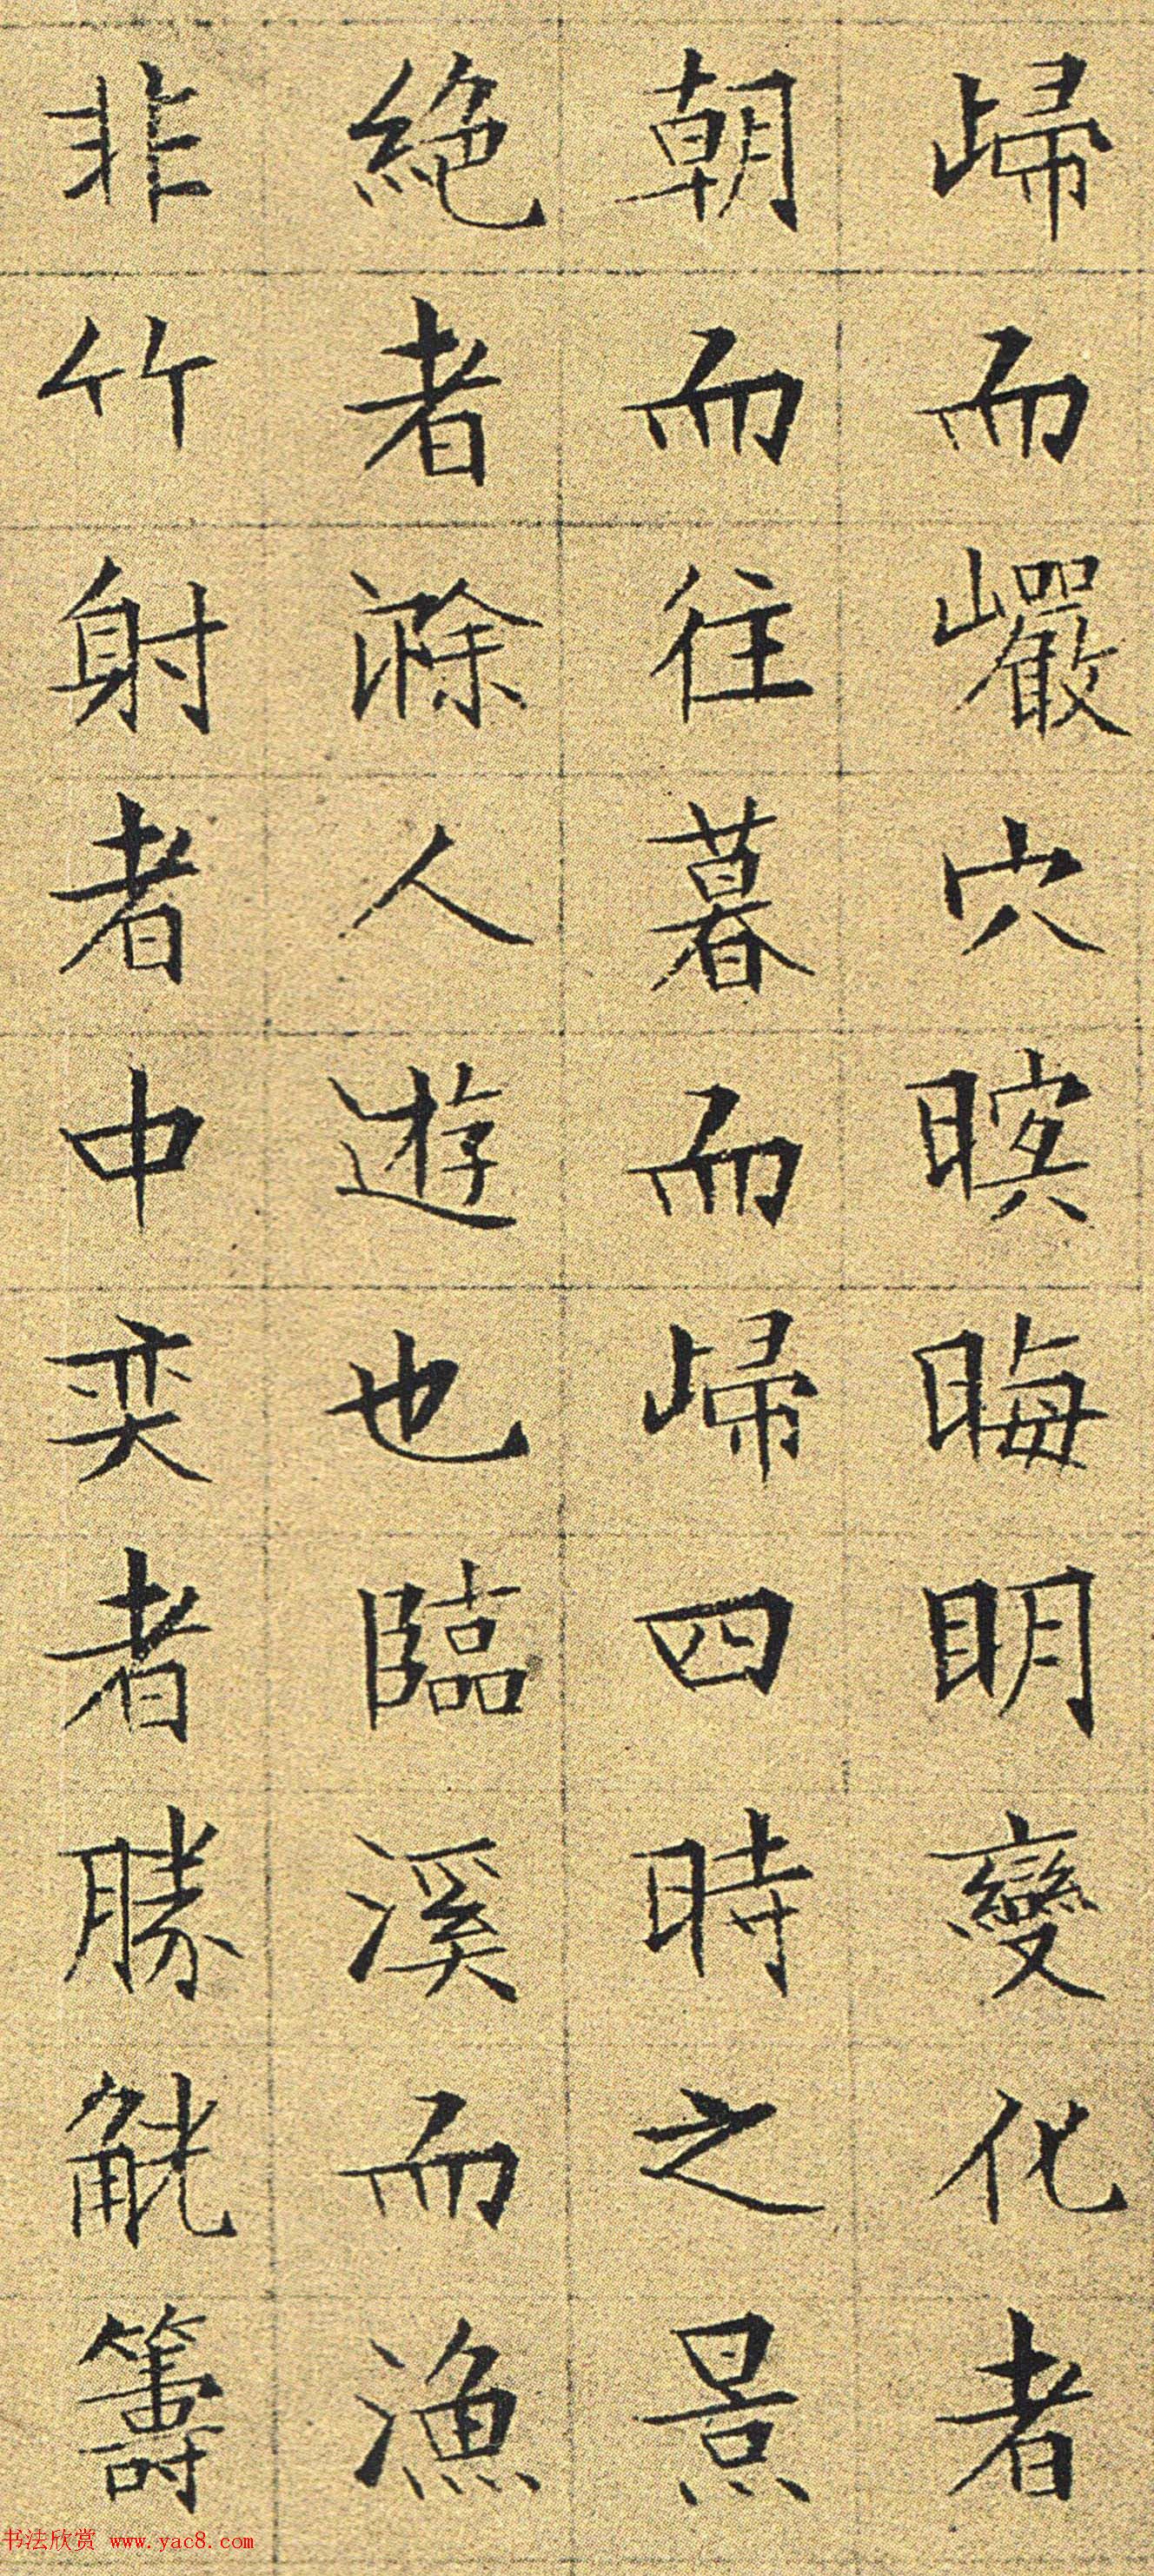 歸而巖穴暝晦明變化者
朝而往暮而歸四時之景
絕者滁人遊也臨溪而漁
非竹射者中奕者勝觥籌
书法欣赏 www.yac8.com